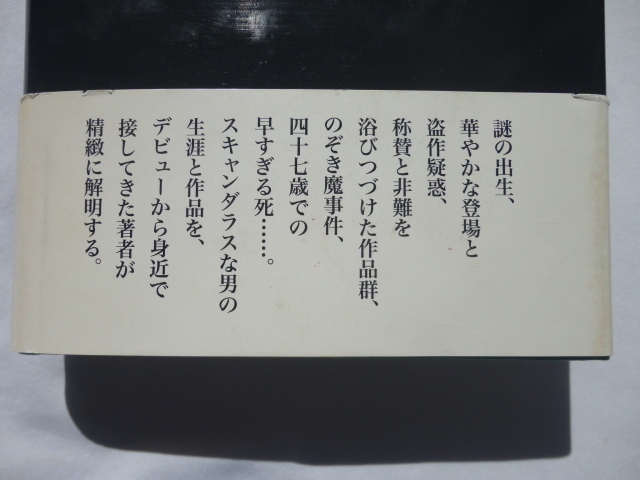 謎の出生、
華やかな登場と
盗作疑惑、
称賛と非難を
浴びつづけた作品群、
のぞき魔事件、
四十七歳での
早すぎる死……。
スキャンダラスな男の
生涯と作品を、
デビューから身近で
接してきた著者が
精緻に解明する。